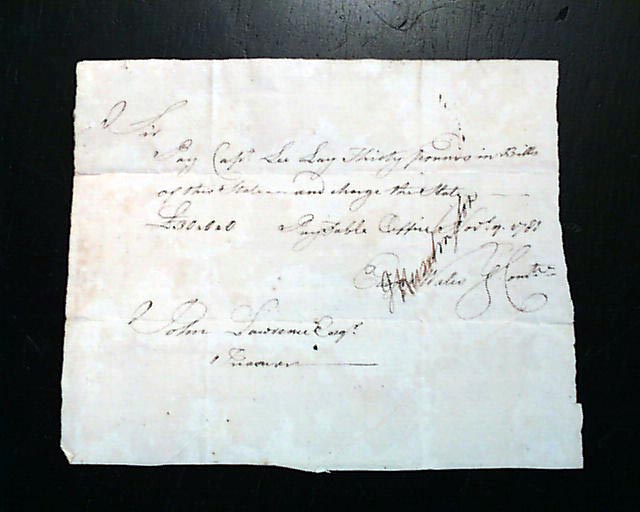 Sir
Pay Capt Lee Lay Thirty pounds in Bills
of this State and charge the State
£30.0.0 Pay Table Office Novr 9. 1781
Wales } Comtee
John Lawrence Esqr
Treasurer